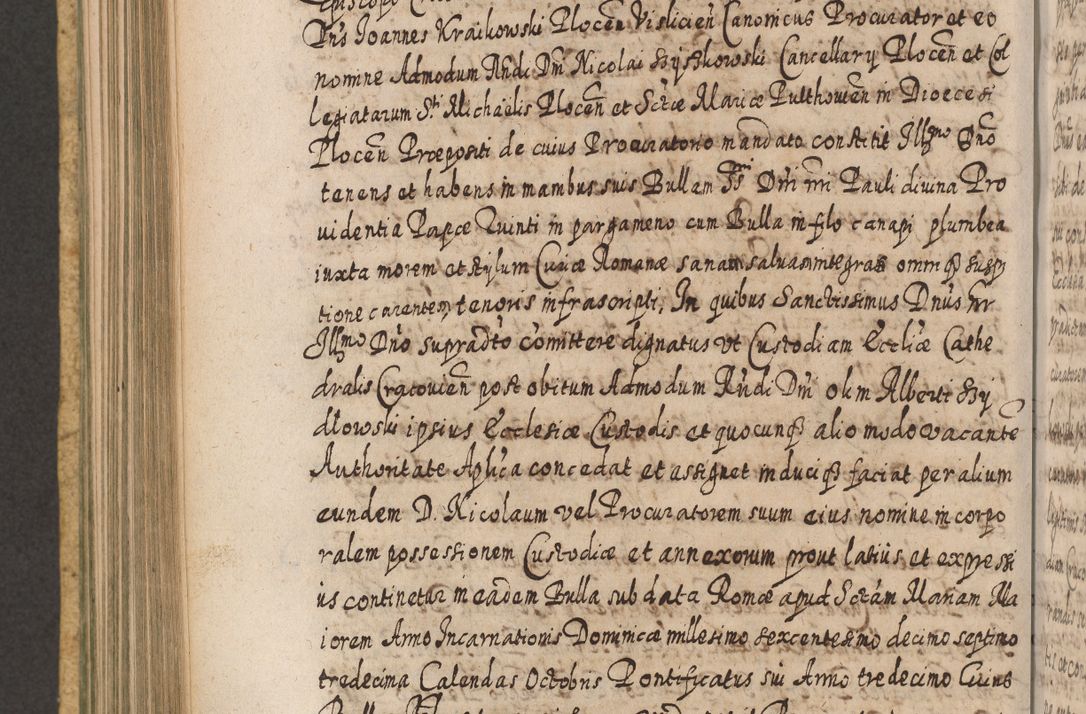 Dn̄s Joannes Kraikowski Plocen̄ Vislicien̄ Canonicus Procurator et eo
nomine Admodum Rn̄di Dn̄i Nicolai Szyszkowski Cancellarÿ Plocen̄ et Col
legiatarum Sti Michaelis Plocen̄ et Sctæ Mariæ Pulthovien̄ in Dioecesi
Plocen̄ Præpositi de cuius Procuratorio mandato constitit Illmo Dno
tenens et habens in manibus suis Bullam Ssmi Dn̄i nr̄i Pauli divina Pro
videntia Papæ Quinti in pargameno cum Bulla in filo canapi plumbea
iuxta morem et stylum Curiæ Romanæ sanam salvam integras omniq̃ suspi
tione carentem, tenoris infrascripti, In quibus Sanctissimus Dnus nr̄
Illmo Dno supradto com̄ittere dignatus ut Custodiam Eccliæ Cathe
dralis Cracovien̄ post obitum Admodum Rn̄di Dn̄i olim Alberti Szy
dłowski ipsius Ecclesiæ Custodis et quocunq̃ alio modo vacantē
Authoritate Aplica concedat et assignet induciq̃ faciat per alium
eundem D. Nicolaum vel Procuratorem suum eius nomine in corpo
ralem possessionem Custodiæ et annexorum prout latius et expressi
us continetur in eadem Bulla sub data Romæ apud Sctam Mariam Ma
iorem Anno Incarnationis Dominicæ millesimo sexcentesimo decimo septimo
tredecima Calendas Octobris Pontificatus sui Anno tredecimo Cuius